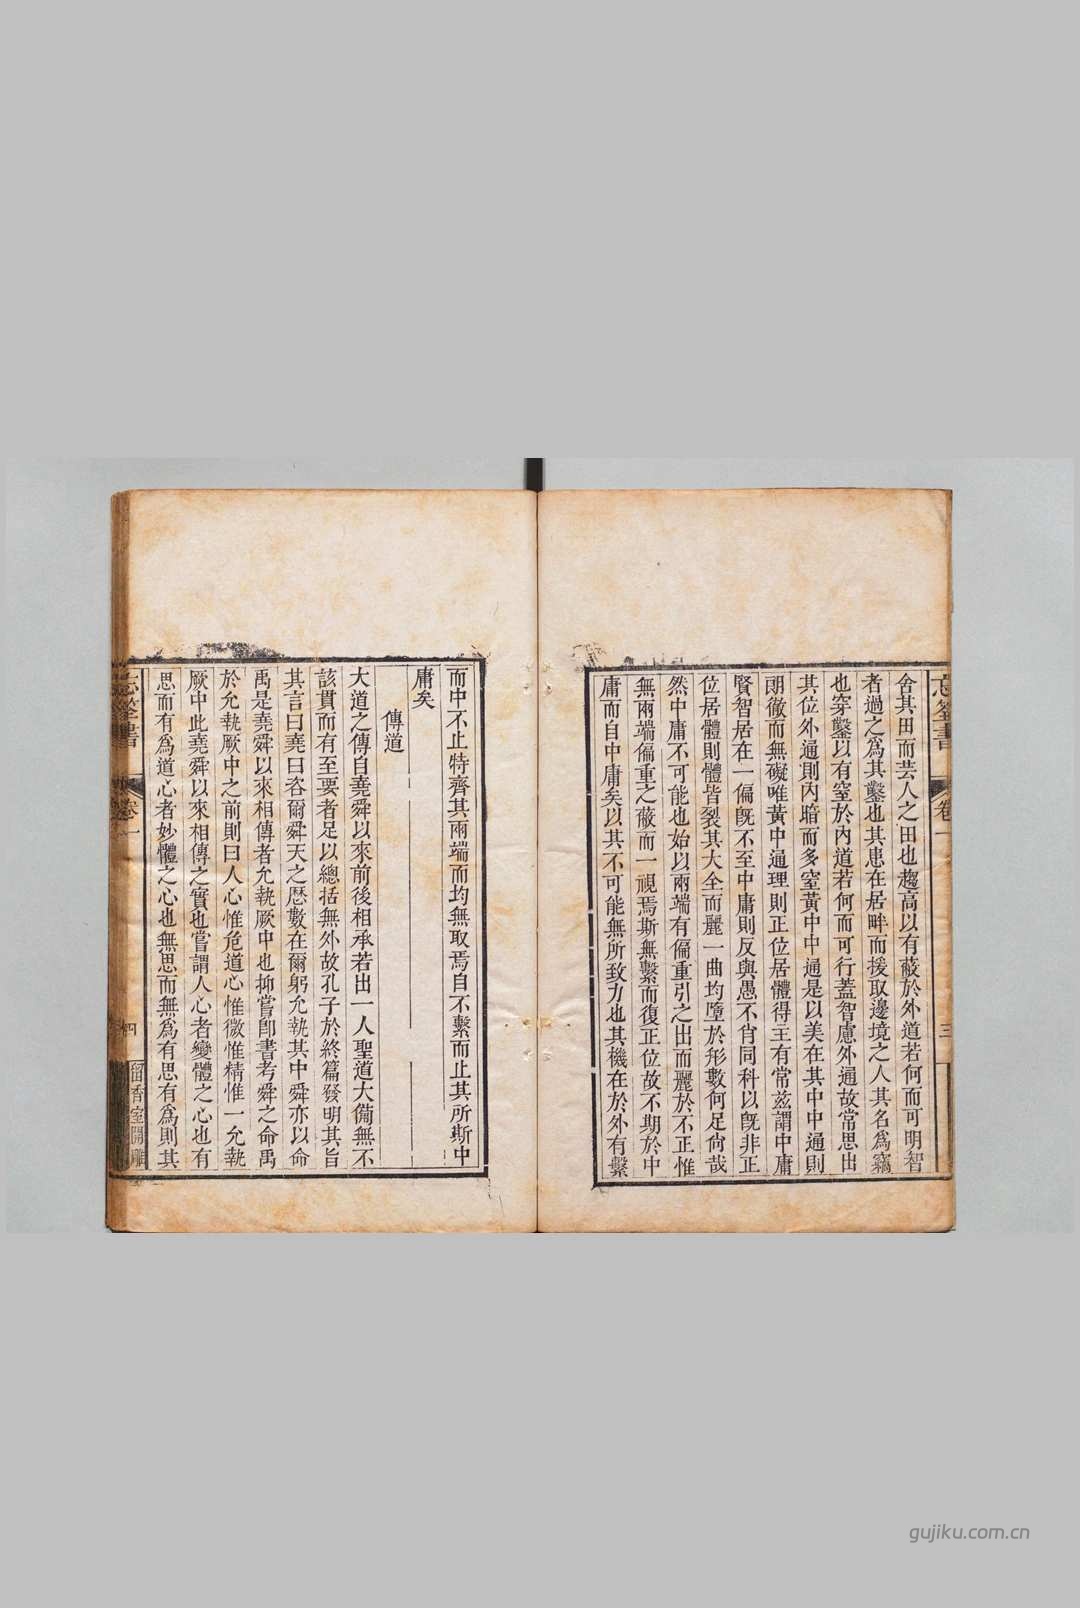 忘筌書
卷一
三
舍其田而芸人之田也趨高以有蔽於外道若何而可明智
者過之爲其鑿也其患在居畔而援取邊境之人其名爲竊
也穿鑿以有窒於內道若何而可行蓋智慮外通故常思出
其位外通則內暗而多窒黃中中通是以美在其中中通則
朗徹而無礙唯黃中通理則正位居體得主有常茲謂中庸
賢智居在一偏旣不至中庸則反與愚不肖同科以旣非正
位居體則體皆裂其大全而麗一曲均墮於形數何足尙哉
然中庸不可能也始以兩端有偏重引之出而麗於不正惟
無兩端偏重之蔽而一視焉斯無繫而復正位故不期於中
庸而自中庸矣以其不可能無所致力也其機在於外有繫
而中不止特齊其兩端而均無取焉自不繫而止其所斯中
庸矣
傳道
大道之傳自堯舜以來前後相承若出一人聖道大備無不
該貫而有至要者足以總括無外故孔子於終篇發明其旨
其言曰堯曰咨爾舜天之曆數在爾躬允執其中舜亦以命
禹是堯舜以來相傳者允執厥中也抑嘗卽書考舜之命禹
於允執厥中之前則曰人心惟危道心惟微惟精惟一允執
厥中此堯舜以來相傳之實也嘗謂人心者變體之心也有
思而有爲道心者妙體之心也無思而無爲有思有爲則其
忘筌書
卷一
四
留香室開雕
gujiku.com.cn